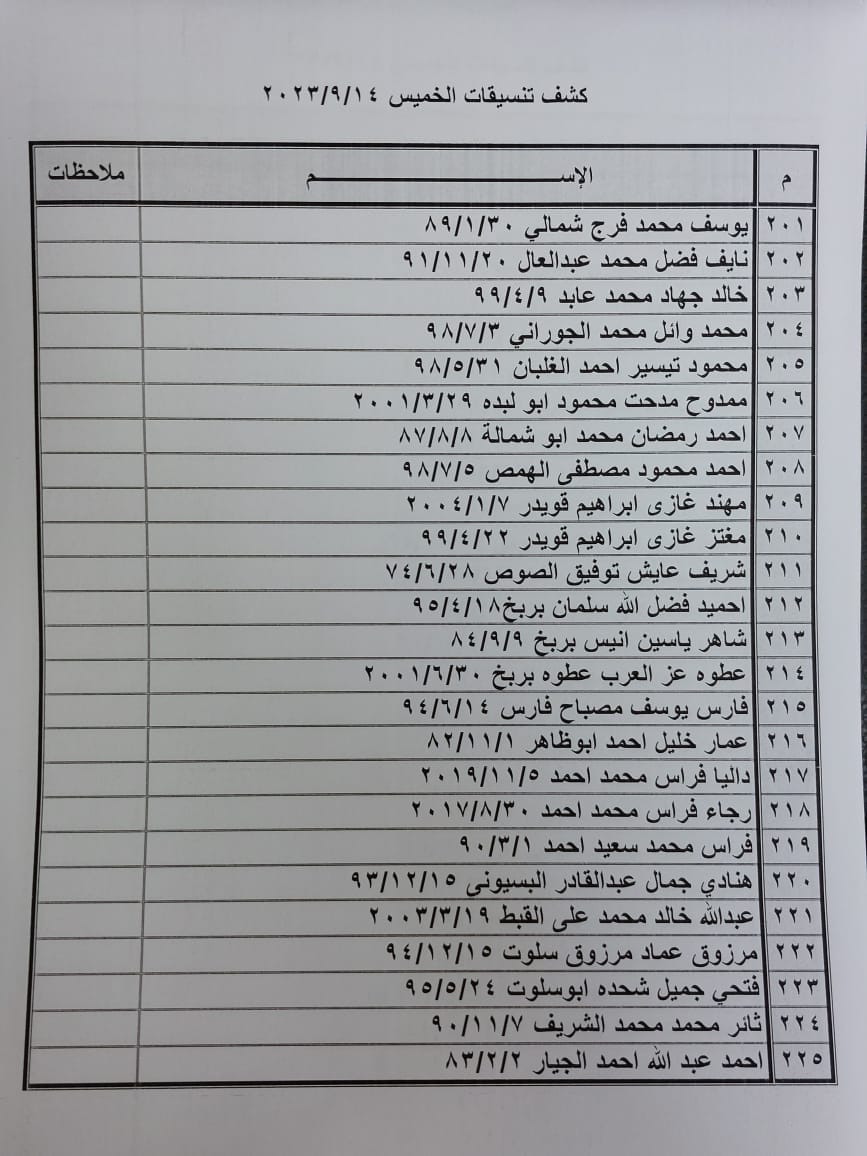 كشف تنسيقات الخميس ٢٠٢٣/٩/١٤
م الإســـــــــــــــــــم ملاحظات
٢٠١ يوسف محمد فرج شمالي ٨٩/١/٣٠
٢٠٢ نايف فضل محمد عبدالعال ٩١/١١/٢٠
٢٠٣ خالد جهاد محمد عابد ٩٩/٤/٩
٢٠٤ محمد وائل محمد الجوراني ٩٨/٧/٣
٢٠٥ محمود تيسير احمد الغلبان ٩٨/٥/٣١
٢٠٦ ممدوح مدحت محمود ابو لبده ٢٠٠١/٣/٢٩
٢٠٧ احمد رمضان محمد ابو شمالة ٨٧/٨/٨
٢٠٨ احمد محمود مصطفى الهمص ٩٨/٧/٥
٢٠٩ مهند غازى ابراهيم قويدر ٢٠٠٤/١/٧
٢١٠ مغتز غازى ابراهيم قويدر ٩٩/٤/٢٢
٢١١ شريف عايش توفيق الصوص ٧٤/٦/٢٨
٢١٢ احميد فضل الله سلمان بربخ٩٥/٤/١٨
٢١٣ شاهر ياسين انيس بربخ ٨٤/٩/٩
٢١٤ عطوه عز العرب عطوه بربخ ٢٠٠١/٦/٣٠
٢١٥ فارس يوسف مصباح فارس ٩٤/٦/١٤
٢١٦ عمار خليل احمد ابوظاهر ٨٢/١١/١
٢١٧ داليا فراس محمد احمد ٢٠١٩/١١/٥
٢١٨ رجاء فراس محمد احمد ٢٠١٧/٨/٣٠
٢١٩ فراس محمد سعيد احمد ٩٠/٣/١
٢٢٠ هنادي جمال عبدالقادر البسيونى ٩٣/١٢/١٥
٢٢١ عبدالله خالد محمد على القبط ٢٠٠٣/٣/١٩
٢٢٢ مرزوق عماد مرزوق سلوت ٩٤/١٢/١٥
٢٢٣ فتحي جميل شحده ابوسلوت ٩٥/٥/٢٤
٢٢٤ ثائر محمد محمد الشريف ٩٠/١١/٧
٢٢٥ احمد عبد الله احمد الجيار ٨٣/٢/٢